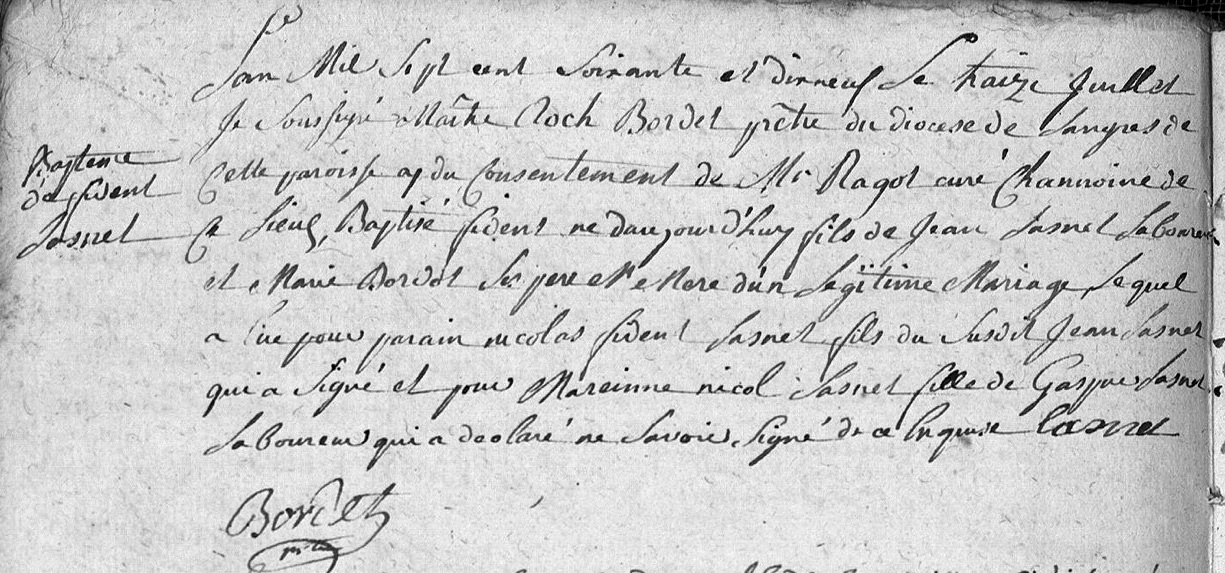 Lan Mil Sept cent Soixante et dixneuf Le treize Juillet
Je Soussigné Maitre Roch Bordet prêtre du diocese de Langres de
Baptême
de fident
Lasnet
Cette paroisse ay du Consentement de Mr Ragot curé Channoine de
Ce Lieu, Baptisé fident ne daujourd'huy fils de Jean Lasnet Laboureur
et Marie Bordot Ses pere et Mere d'un Legitime Mariage, Lequel
a Eue pour parain nicolas fident Lasnet fils du Susdit Jean Lasnet
qui a Signé et pour Mareinne nicol Lasnet fille de Gaspar Lasnet
Laboureur qui a declaré ne Savoir Signé de ce Enquise Lasnet
Bordet
ptre